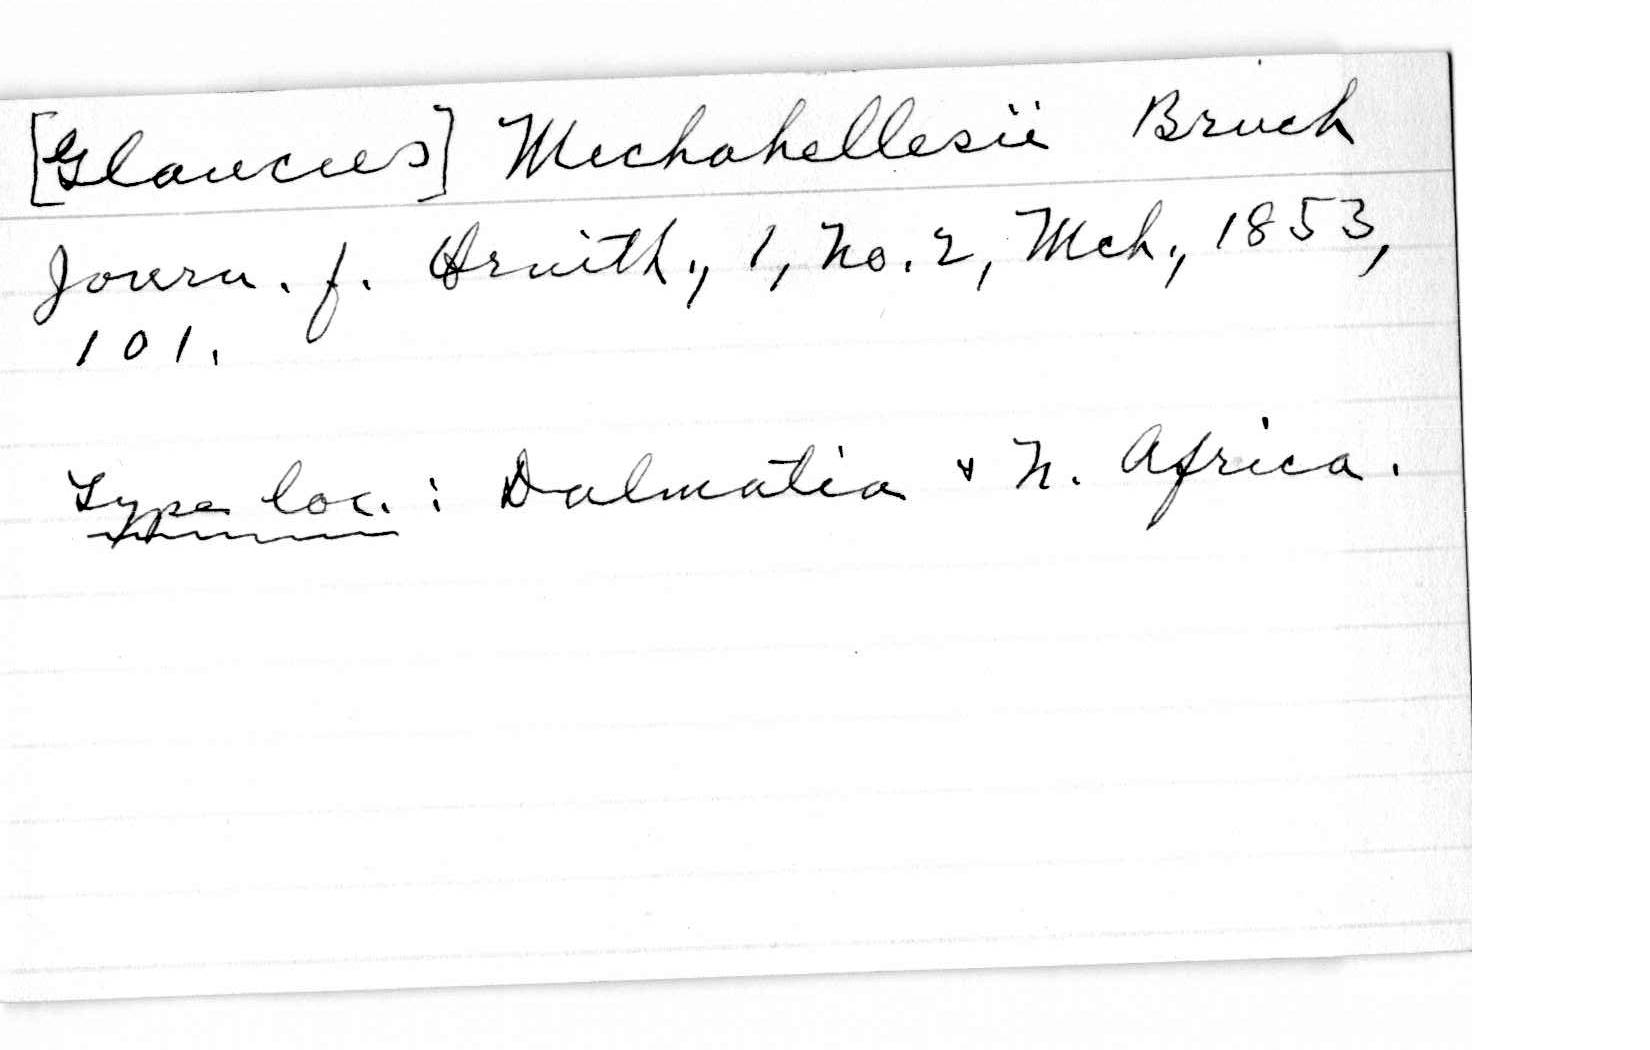 [Glaucus] Michahellesii Bruch
Journ. f. Ornith., 1, No. 2, Mch., 1853,
101.
Type loc.: Dalmatia & N. Africa.